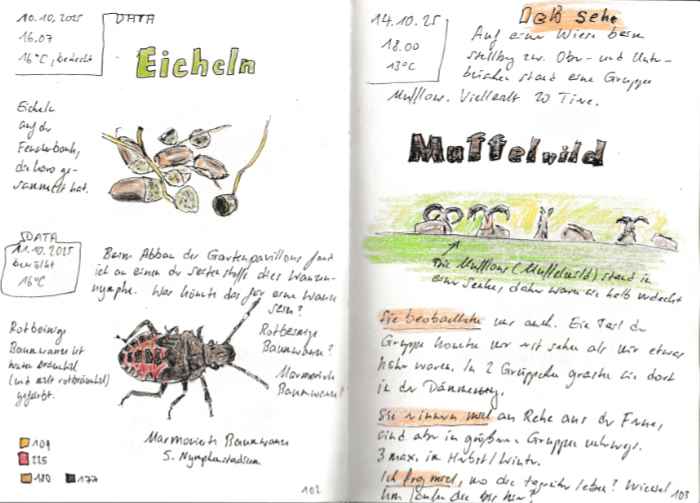 10.10.2025
16.07
16°C, bedeckt
DATA
Eicheln
Eicheln
auf der
Fensterbank,
die ge-
sammelt hat.
DATA
11.10.2025
bewölkt
16°C
Beim Abbau des Gartenpavillons fand
ich an einem der dies Wanzen-
nymphe. Was könnte das für eine Wanze
sein?
Rotbeinige
Baumwanze?
Marmorierte
Baumwanze!
Rotbeinige
Baumwanze ist
(mit rotbräunlich)
gefärbt.
Marmorierte Baumwanze
5. Nymphenstadium
109
225
180
177
102
14.10.25
18.00
13°C
Ich sehe
Auf einer Wiese beim
zw. Ober- und Unter-
stand eine Gruppe
Mufflons. Vielleicht 20 Tiere.
Muffelwild
Die Mufflons (Muffelwild) stand in
einer Senke, daher waren sie halb verdeckt
Sie beobachteten uns auch. Ein Teil der
Gruppe konnte wir erst sehen als wir etwas
höher waren. In 2 Grüppchen grasten sie dort
in der Dämmerung.
Sie erinnern mich an Rehe aus der Ferne,
sind aber in größeren Gruppen unterwegs.
3 max. im Herbst/Winter.
Ich frag mich, wo die tagsüber leben? Wieviel
km laufen die hin?
103